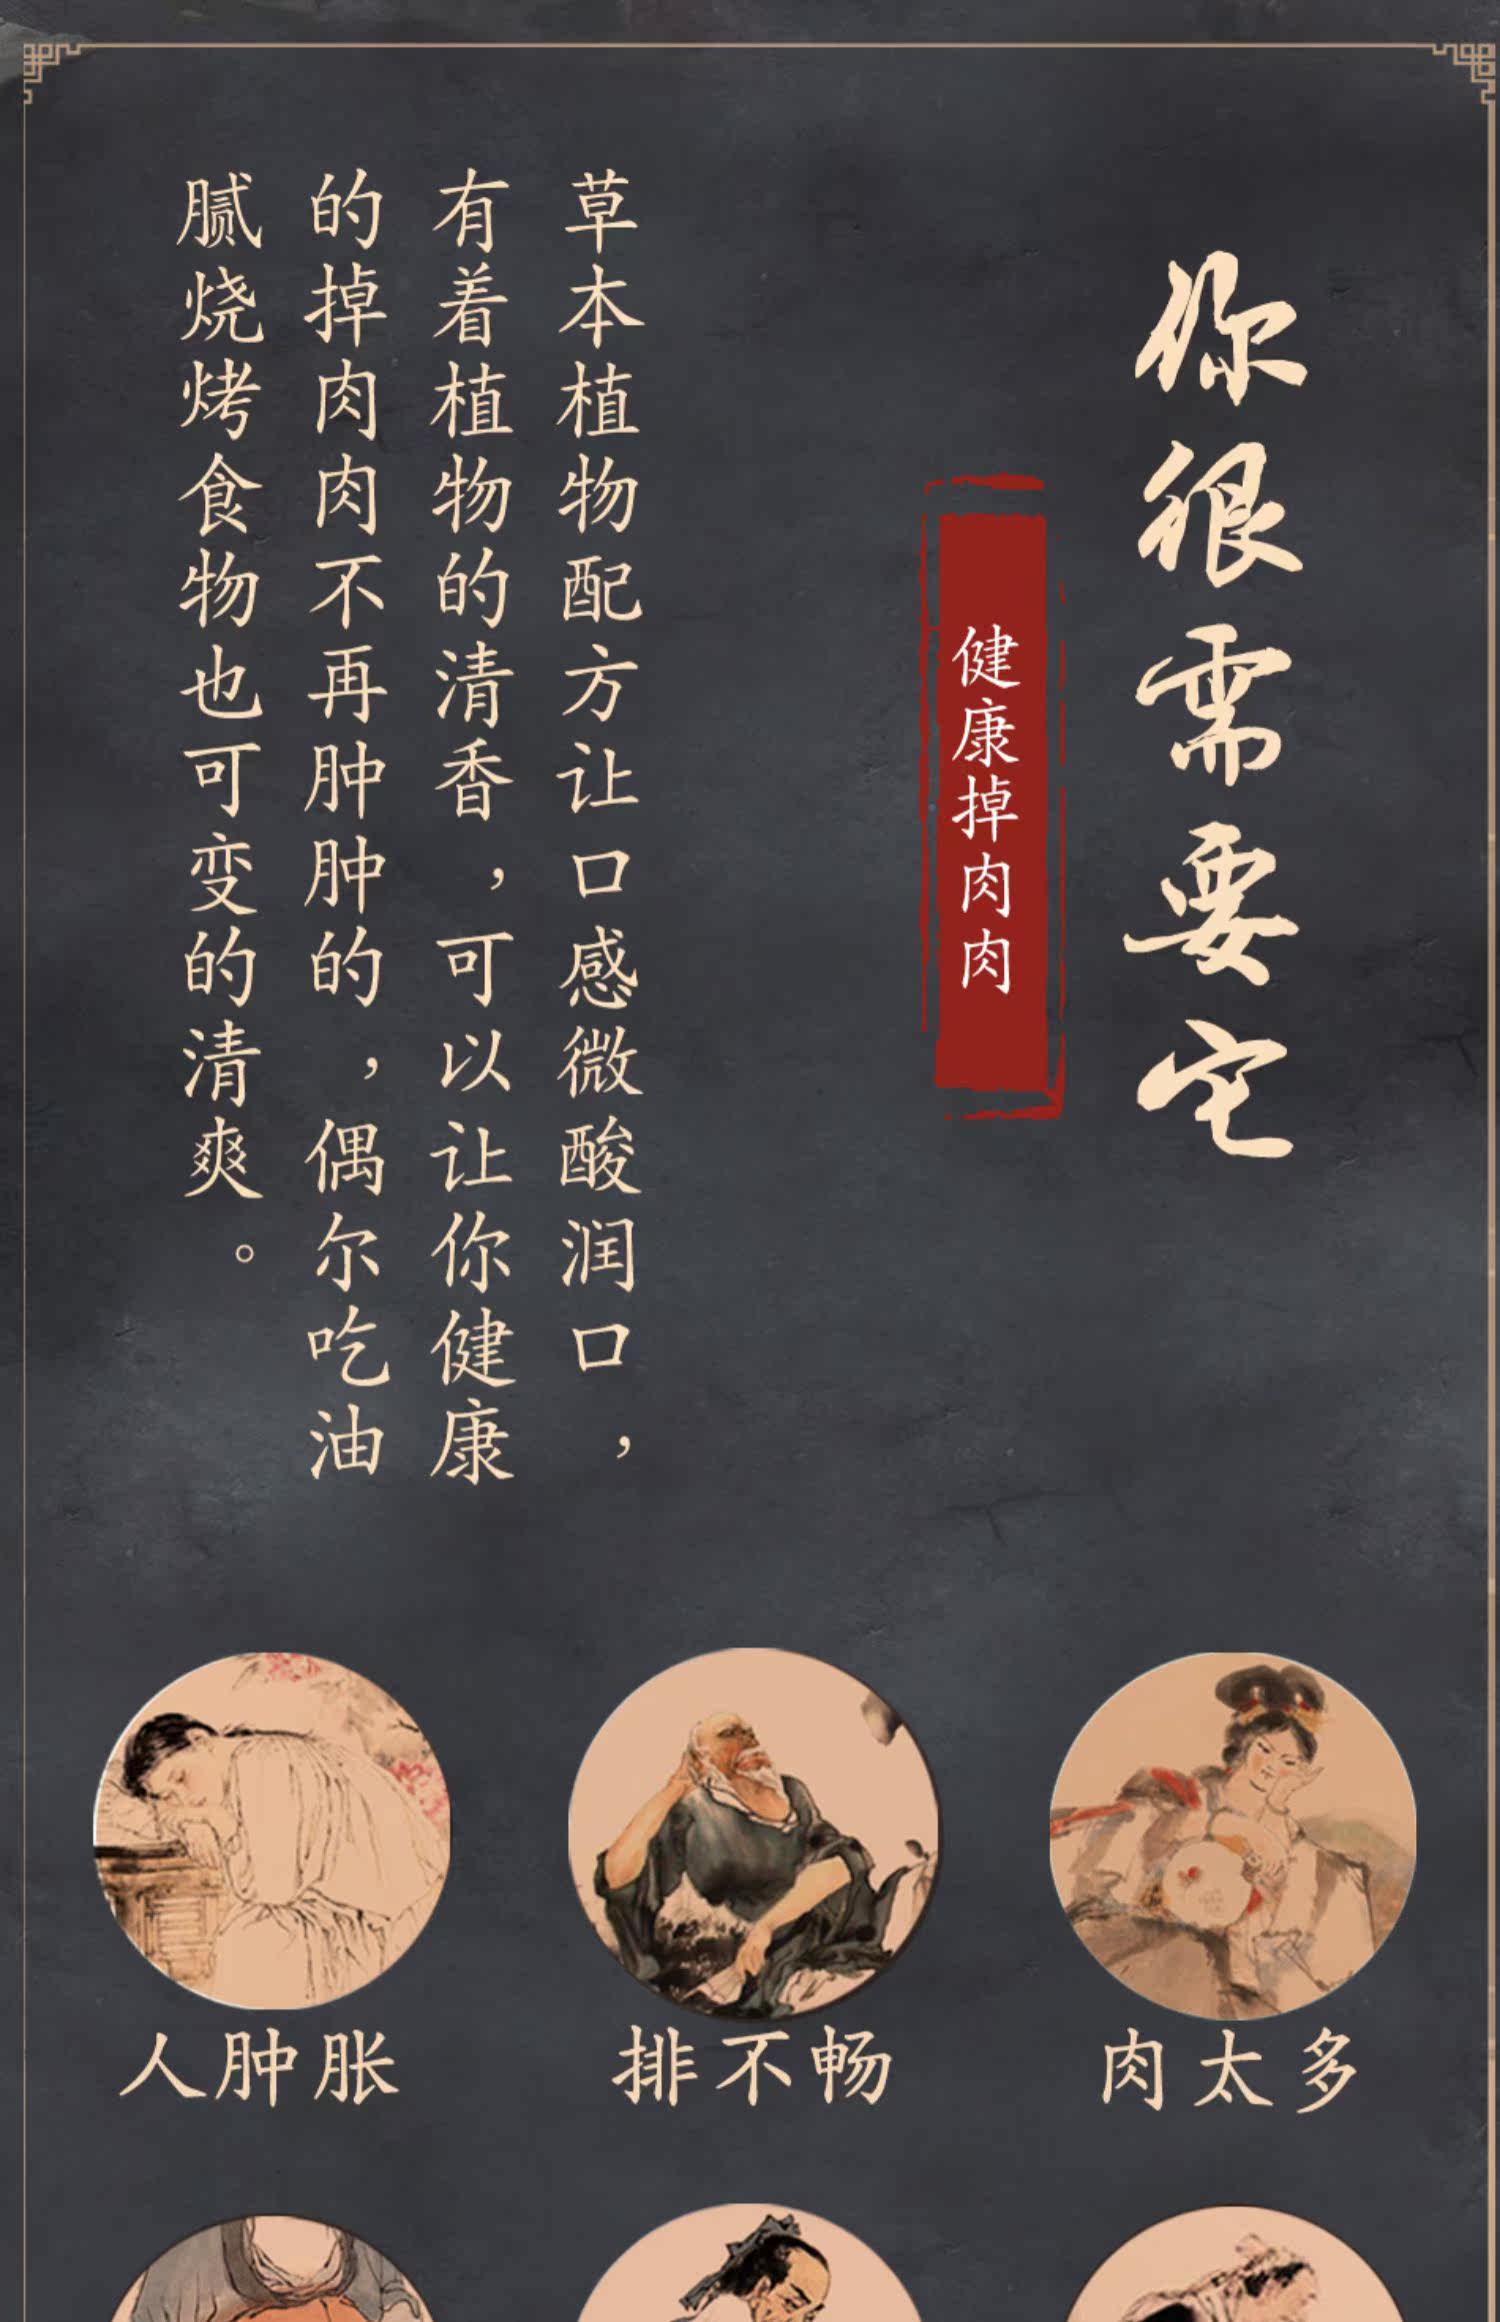 你很需要它
健康掉肉肉
草本植物配方让口感微酸润口，
有着植物的清香，可以让你健康
的掉肉肉不再肿肿的，偶尔吃油
腻烧烤食物也可变的清爽。
人肿胀
排不畅
肉太多